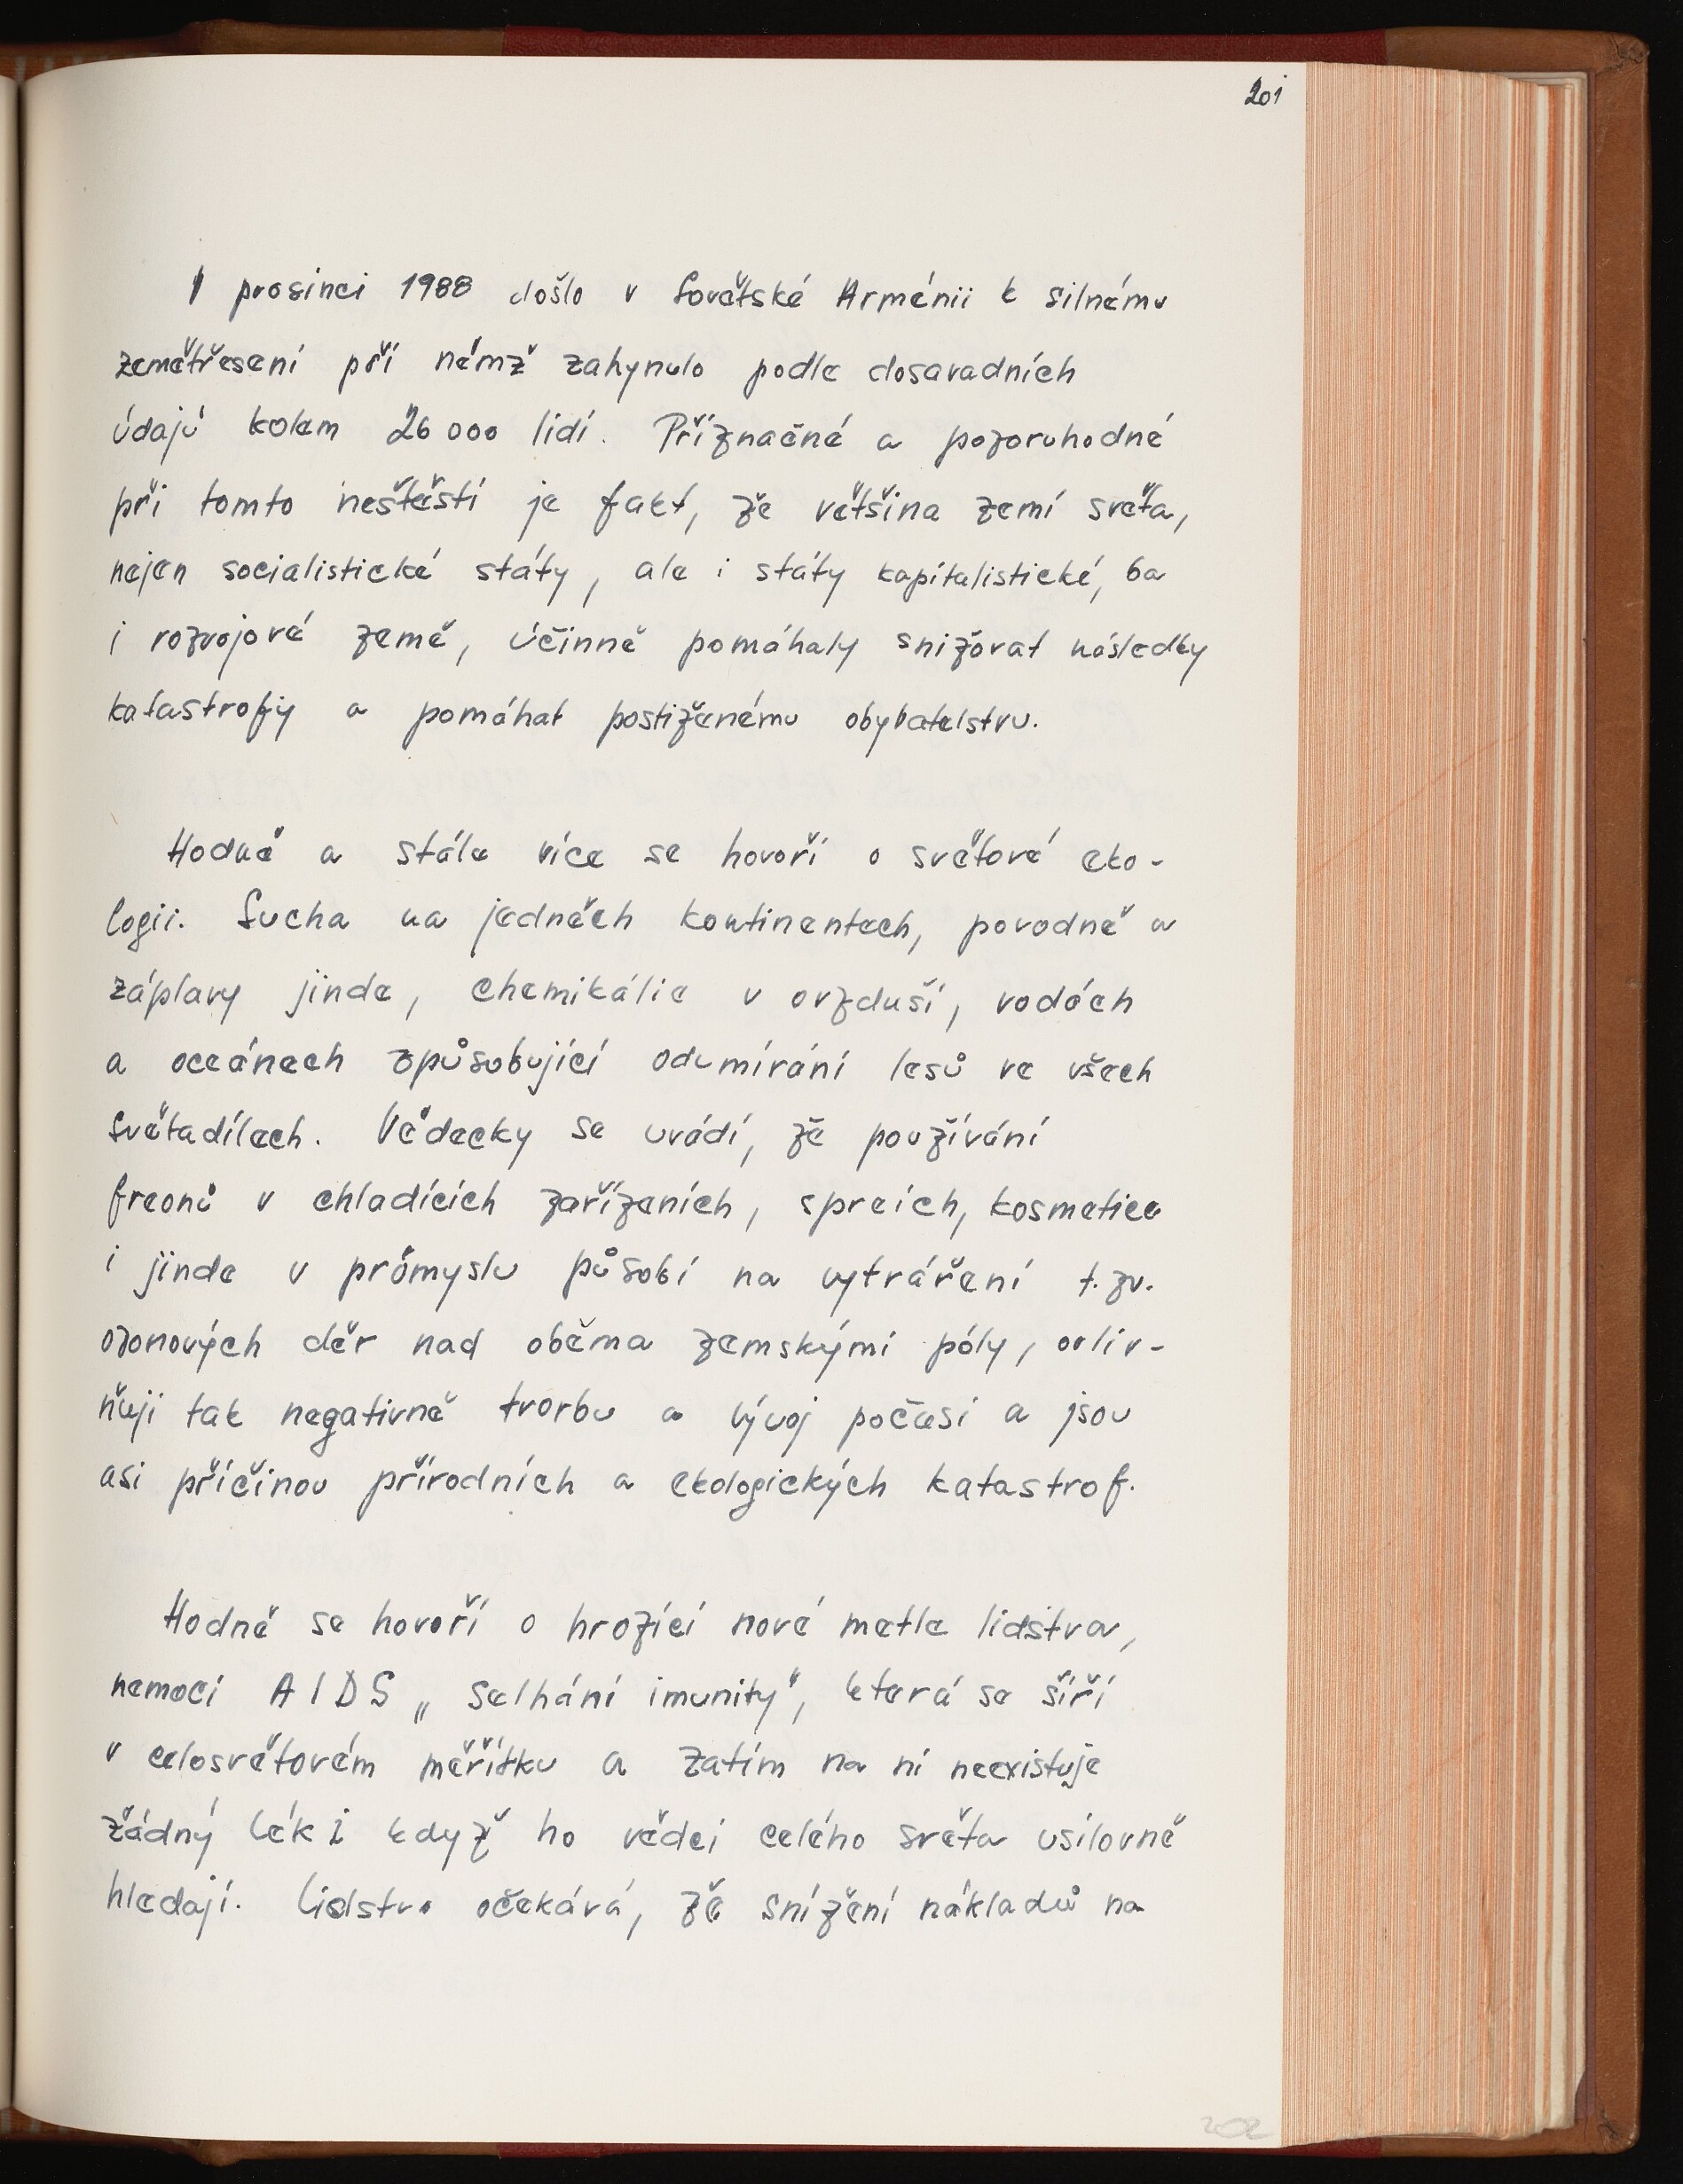 201
V prosinci 1988 došlo v Sovětské Arménii k silnému
zemětřesení při němž zahynulo podle dosavadních
údajů kolem 26 000 lidí. Příznačné a pozoruhodné
při tomto neštěstí je fakt, že většina zemí světa,
nejen socialistické státy, ale i státy kapitalistické, ba
i rozvojové země, účinně pomáhaly snižovat následky
katastrofy a pomáhat postiženému obyvatelstvu.
Hodně a stále více se hovoří o světové eko-
logii. Sucha na jedněch kontinentech, povodně a
záplavy jinde, chemikálie v ovzduší, vodách
a oceánech způsobující odumírání lesů ve všech
světadílech. Vědecky se uvádí, že používání
freonů v chladících zařízeních, spreích, kosmetice
i jinde v průmyslu působí na vytváření t.zv.
ozonových děr nad oběma zemskými póly, ovliv-
ňují tak negativně tvorbu a vývoj počasí a jsou
asi příčinou přírodních a ekologických katastrof.
Hodně se hovoří o hrozící nové metle lidstva,
nemoci AIDS „selhání imunity", která se šíří
v celosvětovém měřítku a zatím na ní neexistuje
žádný lék i když ho vědci celého světa usilovně
hledají. Lidstvo očekává, že snížení nákladů na
202